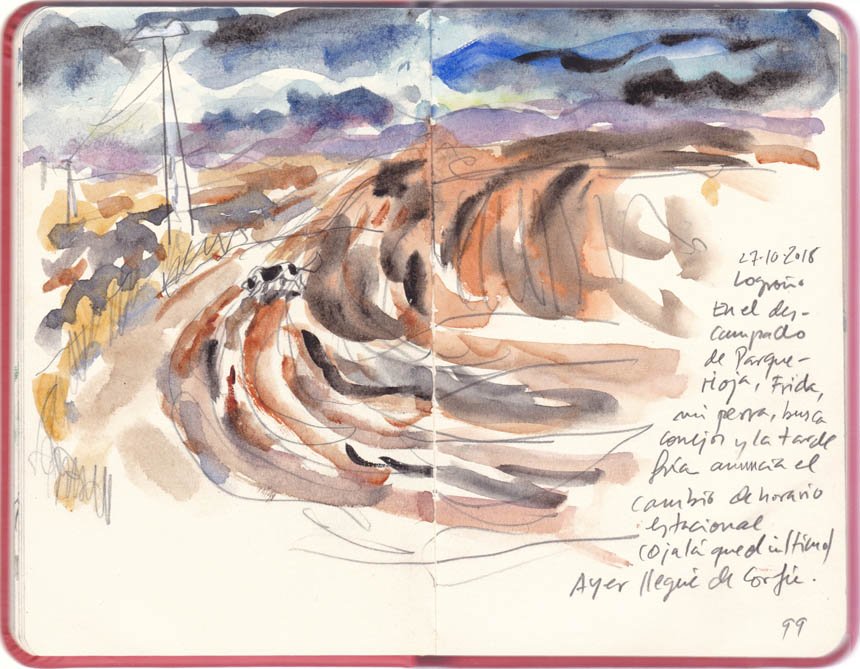 27·10·2018
Logroño
En el des-
campado
de Parque-
rioja, Frida,
mi perra, busca
conejos y la tarde
fría anuncia el
cambio de horario
estacional
(ojalá que el último)
Ayer llegué de Corfú.
99